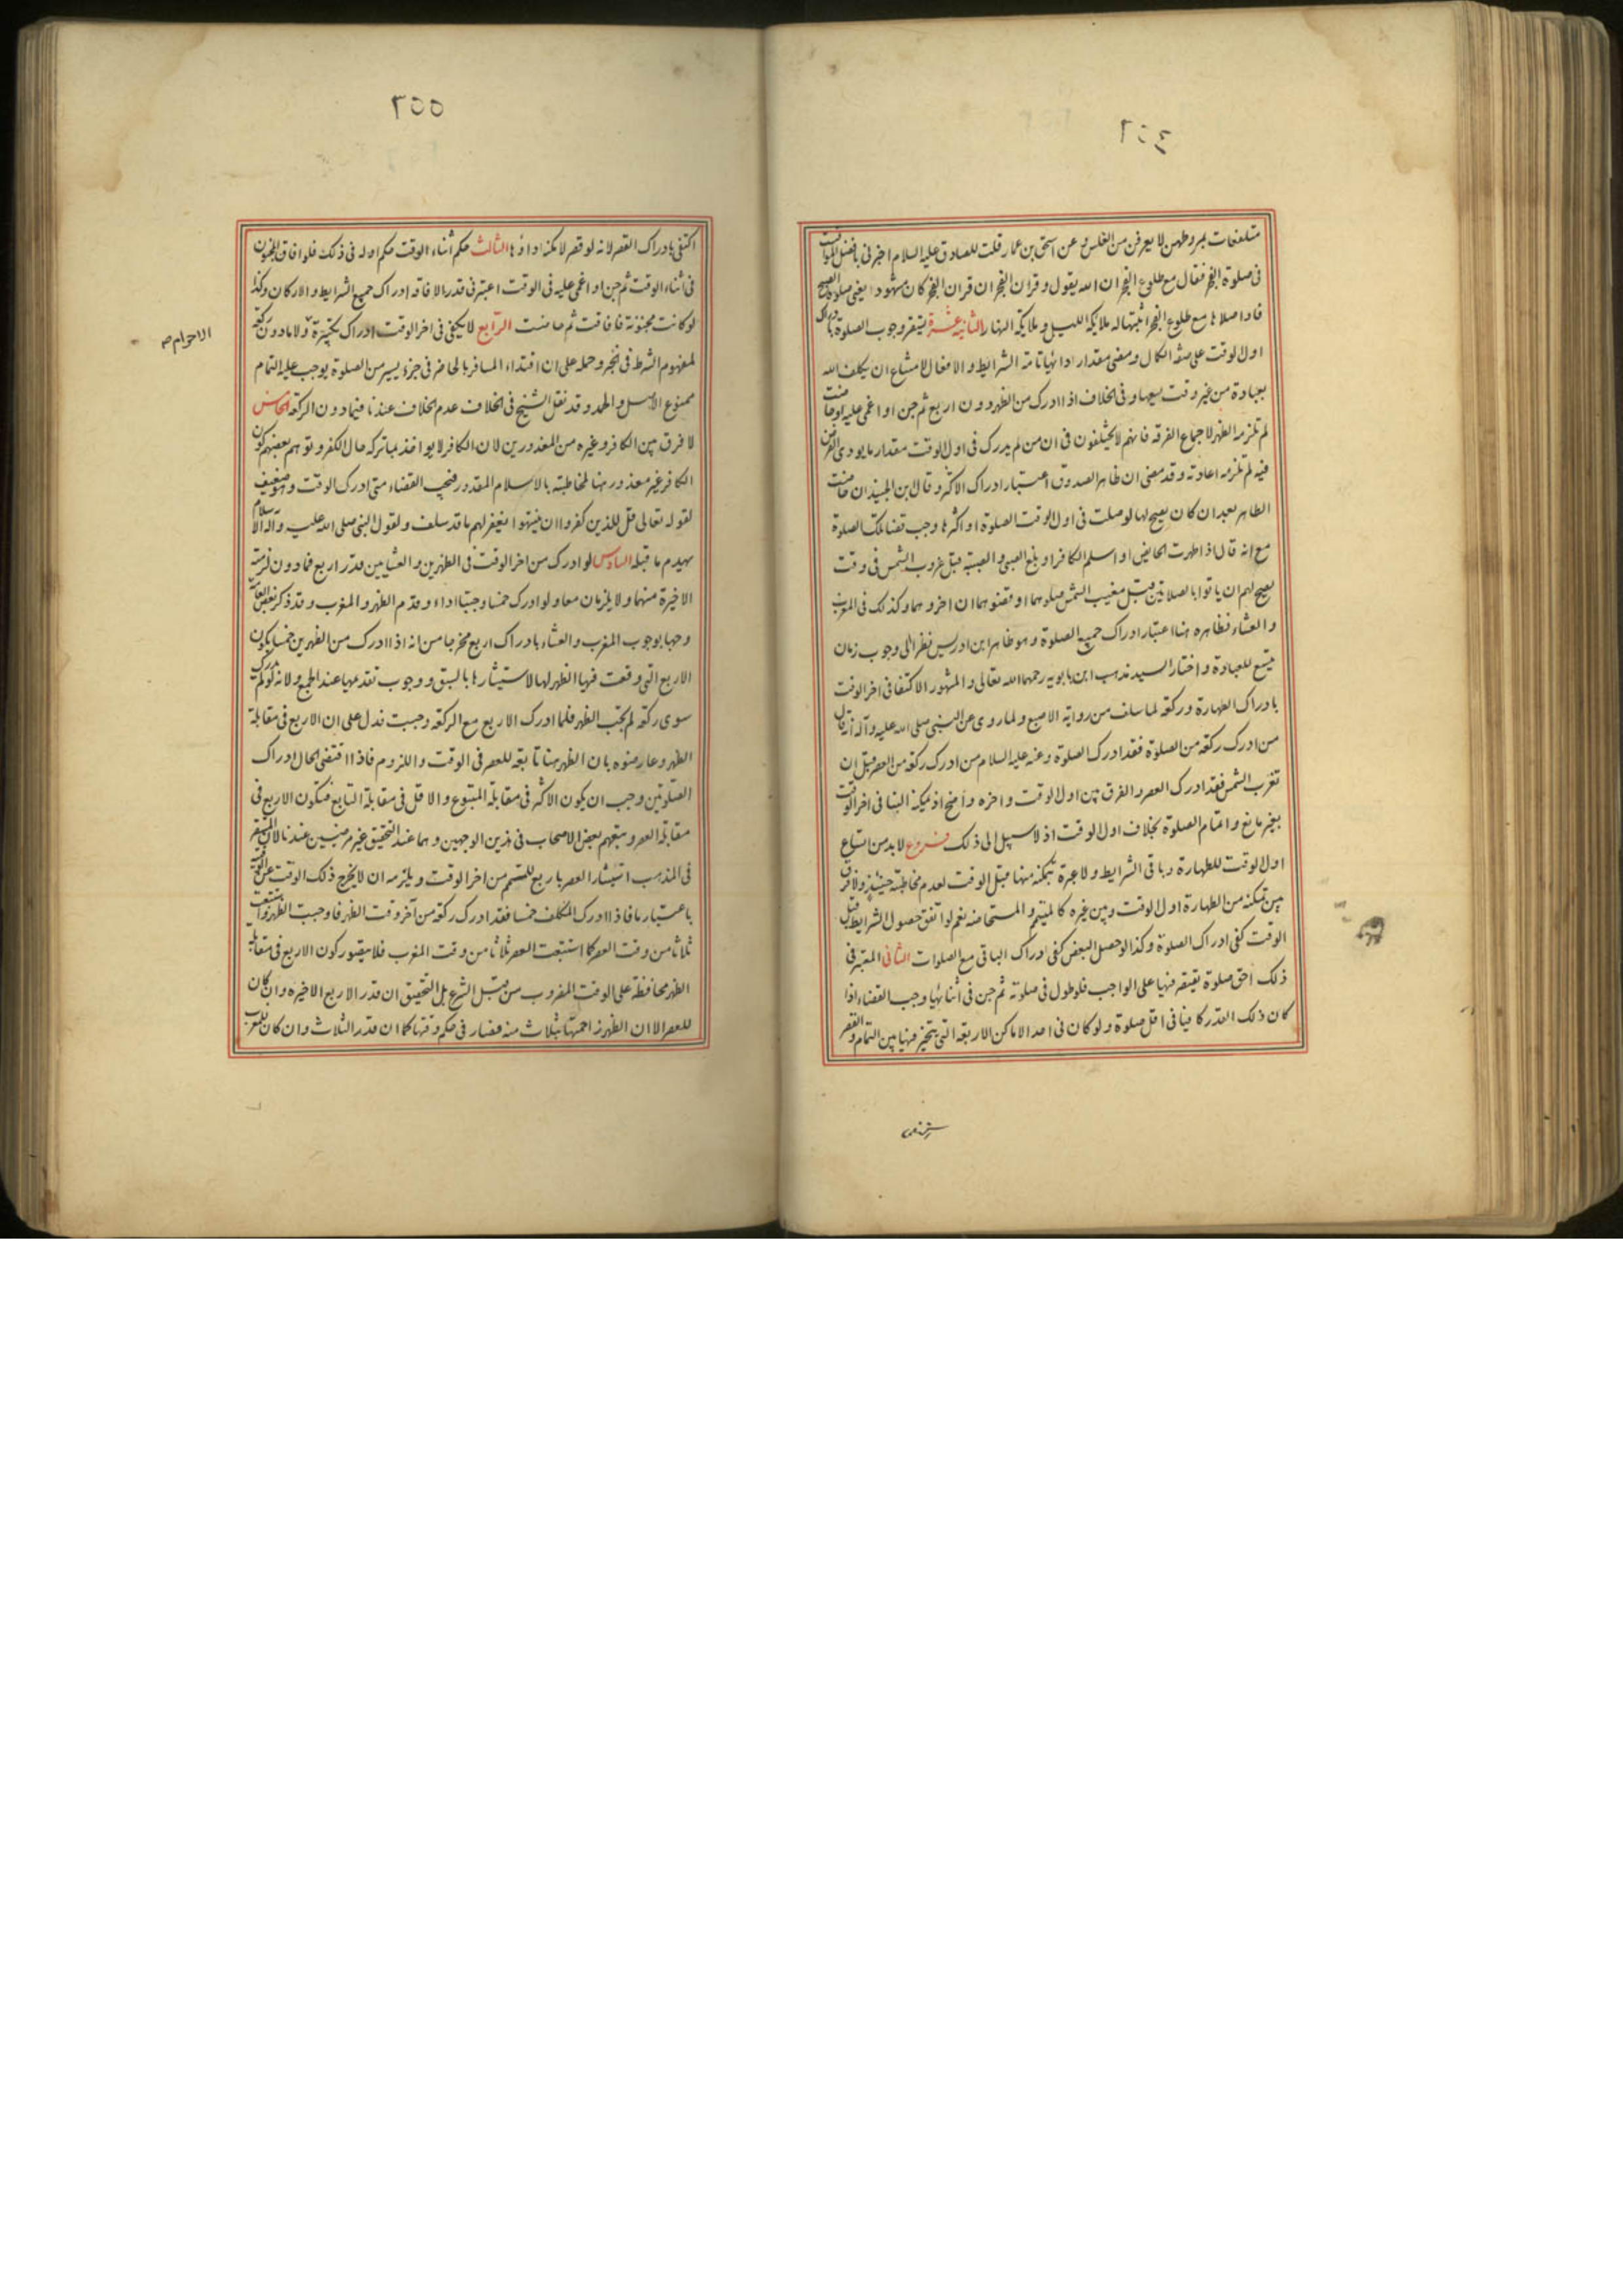 متلفعات بمروطهن لا يعرفن من الغلس وعن اسحق بن عمار قلت للصادق عليه السلام اخبرنى بافضل المواقيت
فى صلوة الفجر فقال مع طلوع الفجر ان الله يقول وقران الفجر ان قران الفجر كان مشهودا يعنى صلوة الصبح
فاذا صلاها مع طلوع الفجر اثبتها له ملائكة الليل وملائكة النهار الثانية عشرة يستقر وجوب الصلوة بادراك
اول الوقت على صفة الكمال ومضى مقدار ادائها تامة الشرايط والافعال لامتناع ان يكلف الله
بعبادة من غير وقت يسعها وفى الخلاف اذا ادرك من الظهر دون اربع ثم جن او اغمى عليه او حاضت
لم تلزمه الظهر لاجماع الفرقة فانهم لا يختلفون فى ان من لم يدرك فى اول الوقت مقدار ما يودى الفرض
فيه لم تلزمه اعادته وقد مضى ان ظاهر الصدوق اعتبار ادراك الاكثر وقال ابن الجنيد ان حاضت
الطاهر بعد ان كان يصح لها لو صلت فى اول الوقت الصلوة او اكثرها وجب قضا تلك الصلوة
مع انه قال اذا طهرت الحايض او اسلم الكافر او بلغ الصبى والصبية قبل غروب الشمس فى وقت
يصح لهم ان ياتوا بالصلاتين قبل مغيب الشمس صلوهما او قضوهما ان اخروهما وكذلك فى المغرب
والعشاء فظاهره هنا اعتبار ادراك جميع الصلوة وهو ظاهر ابن ادريس نظرا الى وجوب زمان
يتسع للعبادة واختار السيد مذهب ابن بابويه رحمهما الله تعالى والمشهور الاكتفا فى اخر الوقت
بادراك الطهارة وركعة لما سلف من رواية الاصبغ ولما روى عن النبى صلى الله عليه وآله انه قال
من ادرك ركعة من الصلوة فقد ادرك الصلوة وعنه عليه السلام من ادرك ركعة من العصر قبل ان
تغرب الشمس فقد ادرك العصر والفرق بين اول الوقت واخره واضح اذ يمكنه البنا فى اخر الوقت
بغير مانع واتمام الصلوة بخلاف اول الوقت اذ لا سبيل الى ذلك فروع لا بد من اتساع
اول الوقت للطهارة وباقى الشرايط ولا عبرة بتمكنه منها قبل الوقت لعدم مخاطبته حينئذ ولا فرق
بين تمكنه من الطهارة اول الوقت وبين غيره كالمتيمم والمستحاضة نعم لو اتفق حصول الشرايط قبل
الوقت كفى ادراك الصلوة وكذا لو حصل البعض كفى ادراك الباقى مع الصلوات الثانى المعتبر فى
ذلك اخف صلوة يقتصر فيها على الواجب فلو طول فى صلوته ثم جن فى أثنائها وجب القضاء اذا
كان ذلك القدر كافيا فى اقل صلوة ولو كان فى احد الاماكن الاربعة التى يتخير فيها بين التمام والقصر
٣٥٥
اكتفى بادراك القصر لانه لو قصر لامكنه اداؤها الثالث حكم أثناء الوقت حكم اوله فى ذلك فلو افاق المجنون
فى أثناء الوقت ثم جن او اغمى عليه فى الوقت اعتبر فى قدر الافاقة ادراك جميع الشرايط والاركان وكذا
لو كانت مجنونة فافاقت ثم حاضت الرابع لا يكفى فى اخر الوقت ادراك تكبيرة ولا ما دون ركعة
الاحرام صح
لمفهوم الشرط فى الخبر وحمله على ان اقتداء المسافر بالحاضر فى جزء يسير من الصلوة يوجب عليه التمام
ممنوع الاصل والحمل وقد نقل الشيخ فى الخلاف عدم الخلاف عندنا فيما دون الركعة الخامس
لا فرق بين الكافر وغيره من المعذورين لان الكافر لا يواخذ بما تركه حال الكفر وتوهم بعضهم كون
الكافر غير معذور هنا لمخاطبته بالاسلام المقدور فيجب القضاء متى ادرك الوقت وهو ضعيف
لقوله تعالى قل للذين كفروا ان ينتهوا يغفر لهم ما قد سلف ولقول النبى صلى الله عليه وآله الاسلام
يهدم ما قبله السادس لو ادرك من اخر الوقت فى الظهرين والعشايين قدر اربع فما دون لزمته
الاخيرة منهما ولا يلزمان معا ولو ادرك خمسا وجبتا اداء وقدم الظهر والمغرب وقد ذكر بعض العامة
وجها بوجوب المغرب والعشاء بادراك اربع مخرجا من انه اذا ادرك من الظهرين خمسا يكون
الاربع التى وقعت فيها الظهر لها لاستيثارها بالسبق ووجوب تقديمها عند الجمع ولانه لو لم يدرك
سوى ركعة لم تجب الظهر فلما ادرك الاربع مع الركعة وجبت فدل على ان الاربع فى مقابلة
الظهر وعارضوه بان الظهر هنا تابعة للعصر فى الوقت واللزوم فاذا اقتضى الحال ادراك
الصلوتين وجب ان يكون الاكثر فى مقابلة المتبوع والاقل فى مقابلة التابع فتكون الاربع فى
مقابلة العصر وتبعهم بعض الاصحاب فى هذين الوجهين وهما عند التحقيق غير مرضيين عندنا لان المستقر
فى المذهب استيثار العصر باربع للمتمم من اخر الوقت ويلزمه ان لا يخرج ذلك الوقت عن الوقتية
باعتبار ما فاذا ادرك المكلف خمسا فقد ادرك ركعة من آخر وقت الظهر فاوجبت الظهر واستتبعت
ثلاثا من وقت العصر كما استتبعت العصر ثلاثا من وقت المغرب فلا يتصور كون الاربع فى مقابلة
الظهر محافظة على الوقت المضروب من قبل الشرع بل التحقيق ان قدر الاربع الاخيرة وان كان
للعصر الا ان الظهر زاحمتها بثلاث منه فصار فى حكم وقتها كما ان قدر الثلاث وان كان للمغرب